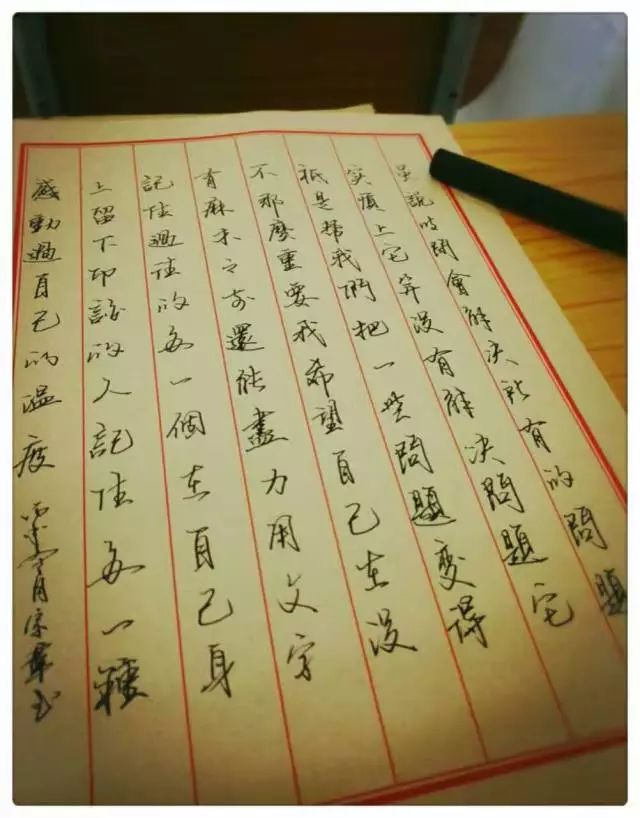 虽說时間會解决所有的問題
实質上它没有解决問題它
祇是幫我們把一些問題變得
不那麼重要我希望自己在没
有麻木之前還能盡力用文字
記住過往的每一個在自己身
上留下印記的人記住每一種
感動過自己的温度